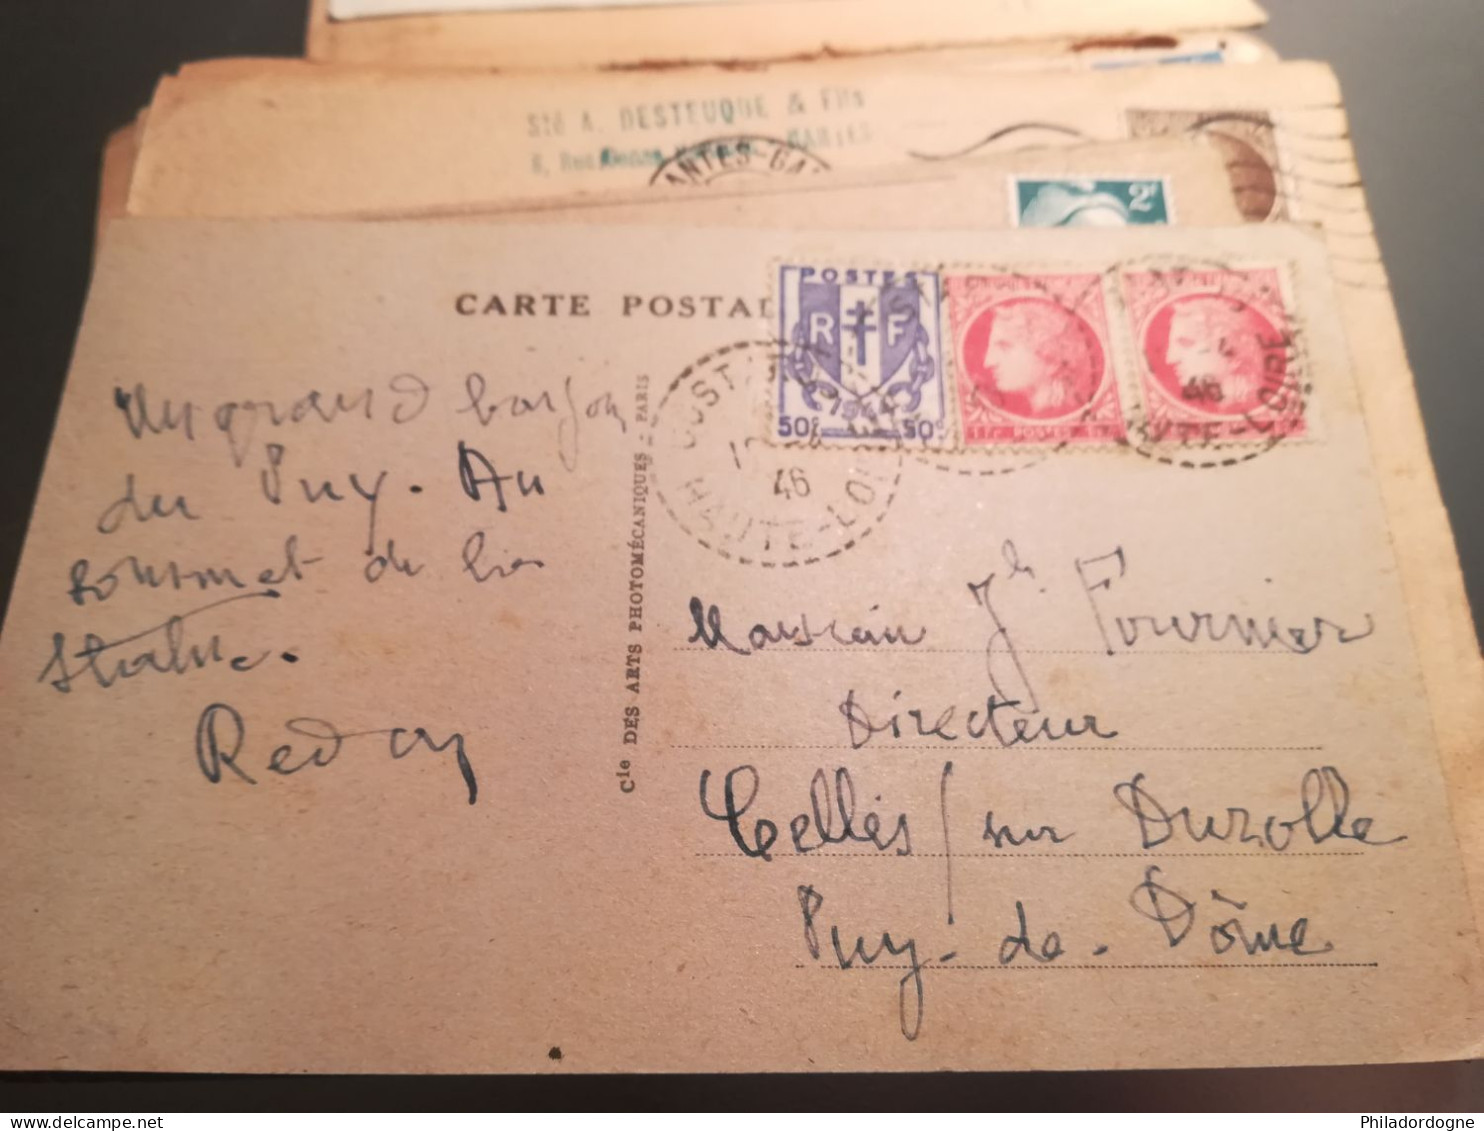 Sté A. DESTEUQUE & Fils
8, Rue
ANTES-GA
2F
CARTE POSTAL
POSTES
R F
1944
50c 50c
46
HAUTE-LOI
1F POSTES 1F
46
HAUTE-LOIRE
Un grand bonjour
du Puy. Au
sommet de la
statue.
Redon
Cie DES ARTS PHOTOMÉCANIQUES - PARIS
Monsieur Jh Fournier
Directeur
Celles / sur Durolle
Puy-de-Dôme
Philadordogne